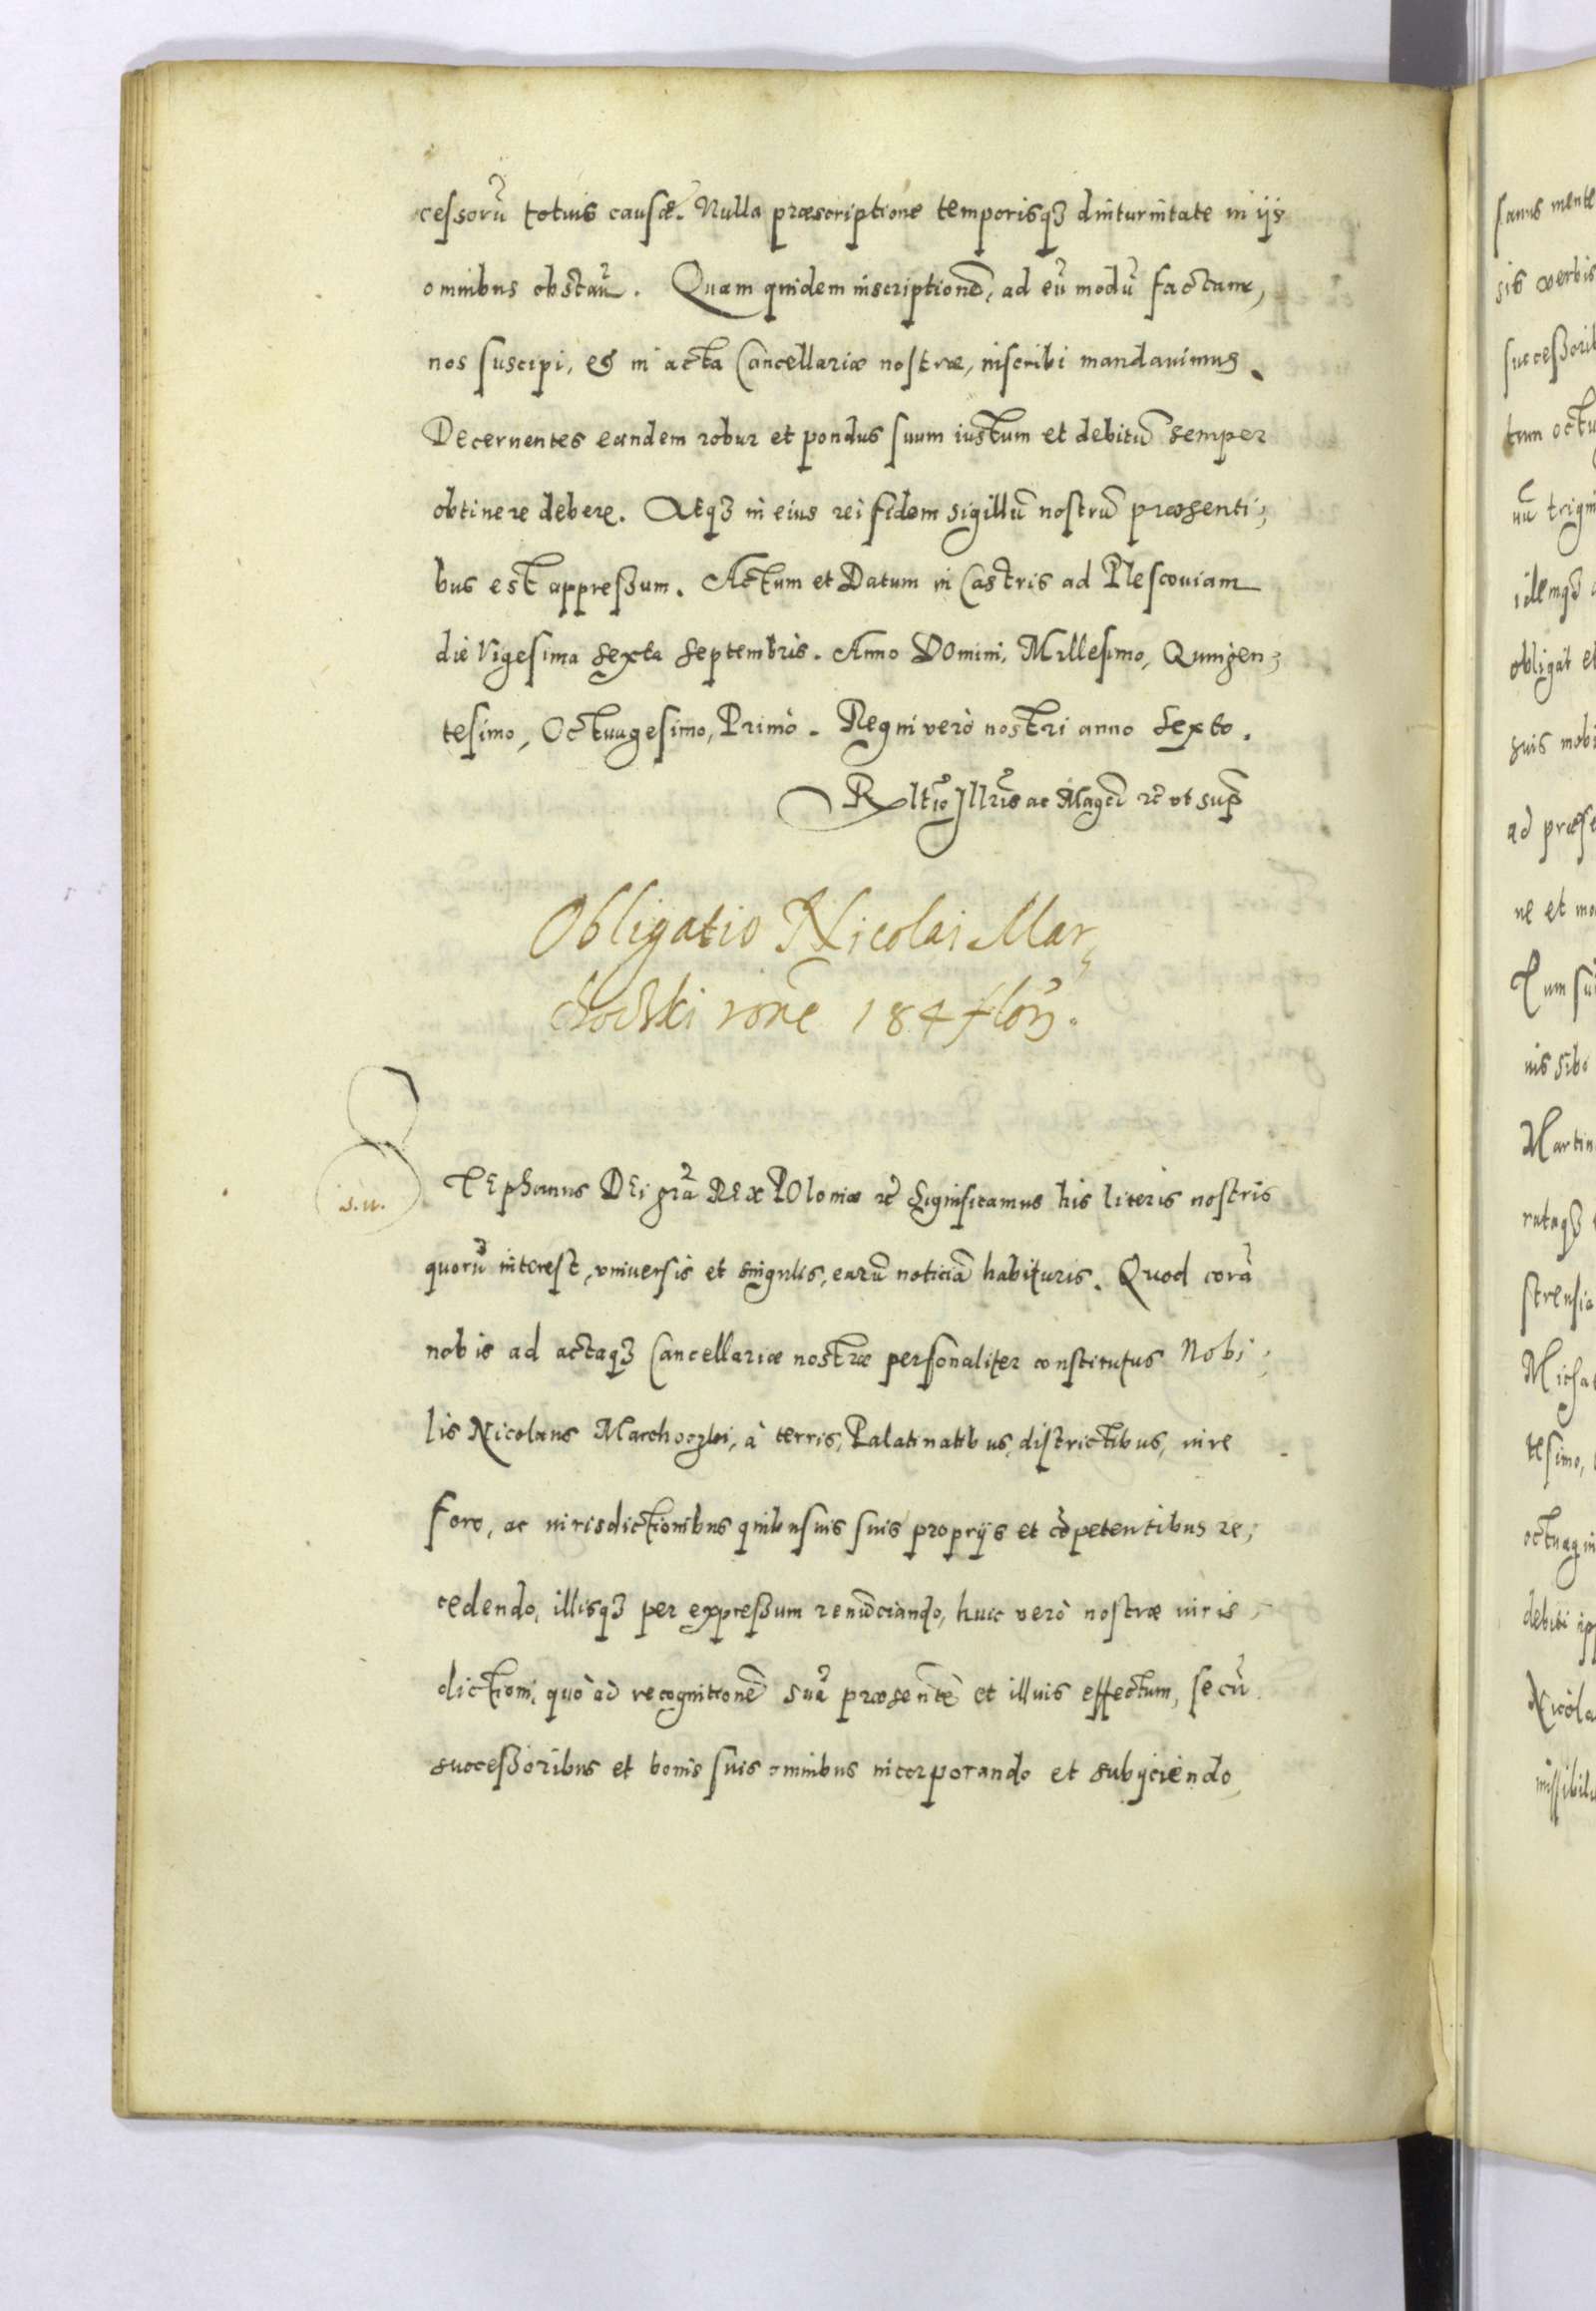 cessorũ totius causæ. Nulla præscriptione temporisqȝ diuturnitate in ijs
omnibus obstañ. Quam quidem inscriptionẽ, ad eũ modũ factam,
nos suscipi, et in acta Cancellariæ nostræ, inscribi mandauimus.
Decernentes eandem robur et pondus suum iustum et debitũ semper
obtinere debere. Atqȝ in eius rei fidem sigillũ nostrũ præsenti,
bus est appreßum. Actum et Datum in Castris ad Plescouiam
die Vigesima sexta Septembris. Anno Domini, Millesimo, Quingen,
tesimo, Octuagesimo, Primò. Regni verò nostri anno Sexto.
Rltio Illris ac Magci rc̃ vt sup̃
Obligatio Nicolai Mar,
chocki rõne 184 floȝ.
s.n.
Tephanus Dei grã Rex Poloniæ rc̃ Significamus his literis nostris
quorũ interest, vniuersis et singulis, earũ noticiã habituris. Quod corã
nobis ad actaqȝ Cancellariæ nostræ personaliter constitutus Nobi,
lis Nicolaus Marchoczki, à terris, Palatinatibus, districtibus, iure
foro, ac iurisdictionibus quibusuis suis proprijs et cõpetentibus re,
cedendo, illisqȝ per expreßum renũciando, huic verò nostræ iuris,
dictioni, quò ad recognitionẽ suã præsentẽ et illuis effectum, se cũ
succeßoribus et bonis suis omnibus incorporando et subijciendo,
sanus mente
sis verbis
ad præse
Martin
tesimo,
debiti